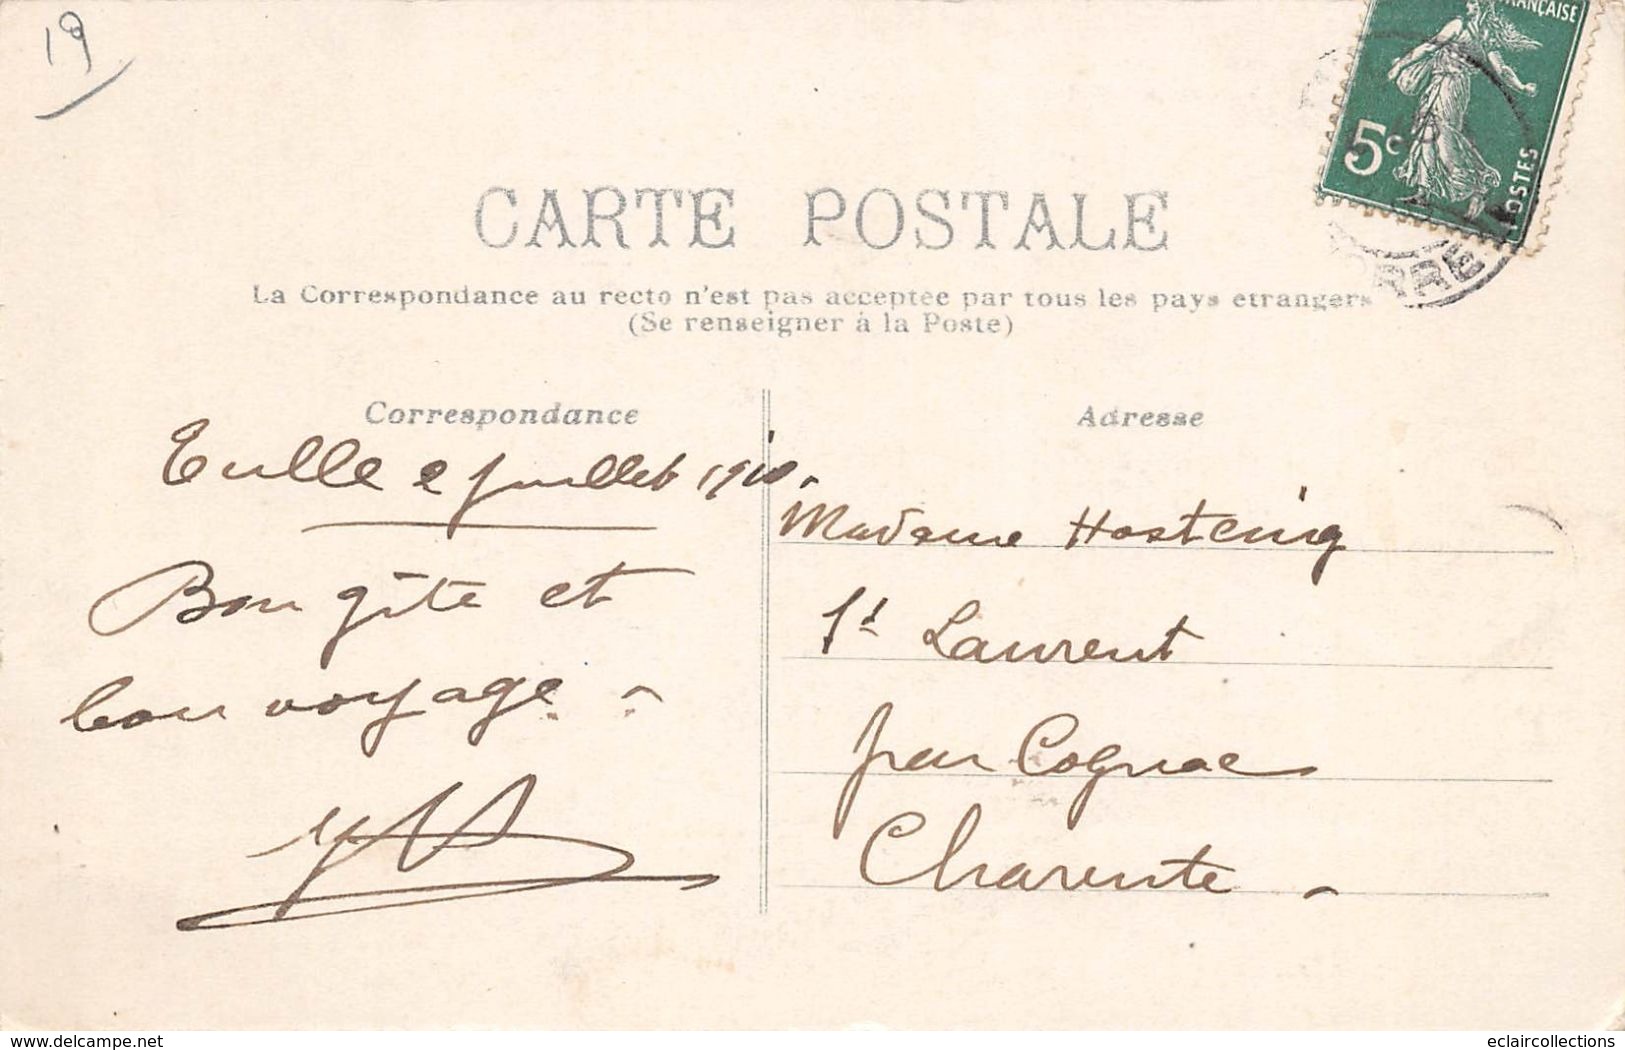 19
FRANÇAISE
5c
POSTES
CARTE POSTALE
La Correspondance au recto n'est pas acceptée par tous les pays étrangers
(Se renseigner à la Poste)
Correspondance
Tulle 2 juillet 1910.
Bon gîte et
bon voyage -
Adresse
Madame Hosteing
St Laurent
par Cognac
Charente -
delcampe.net
eclaircollections